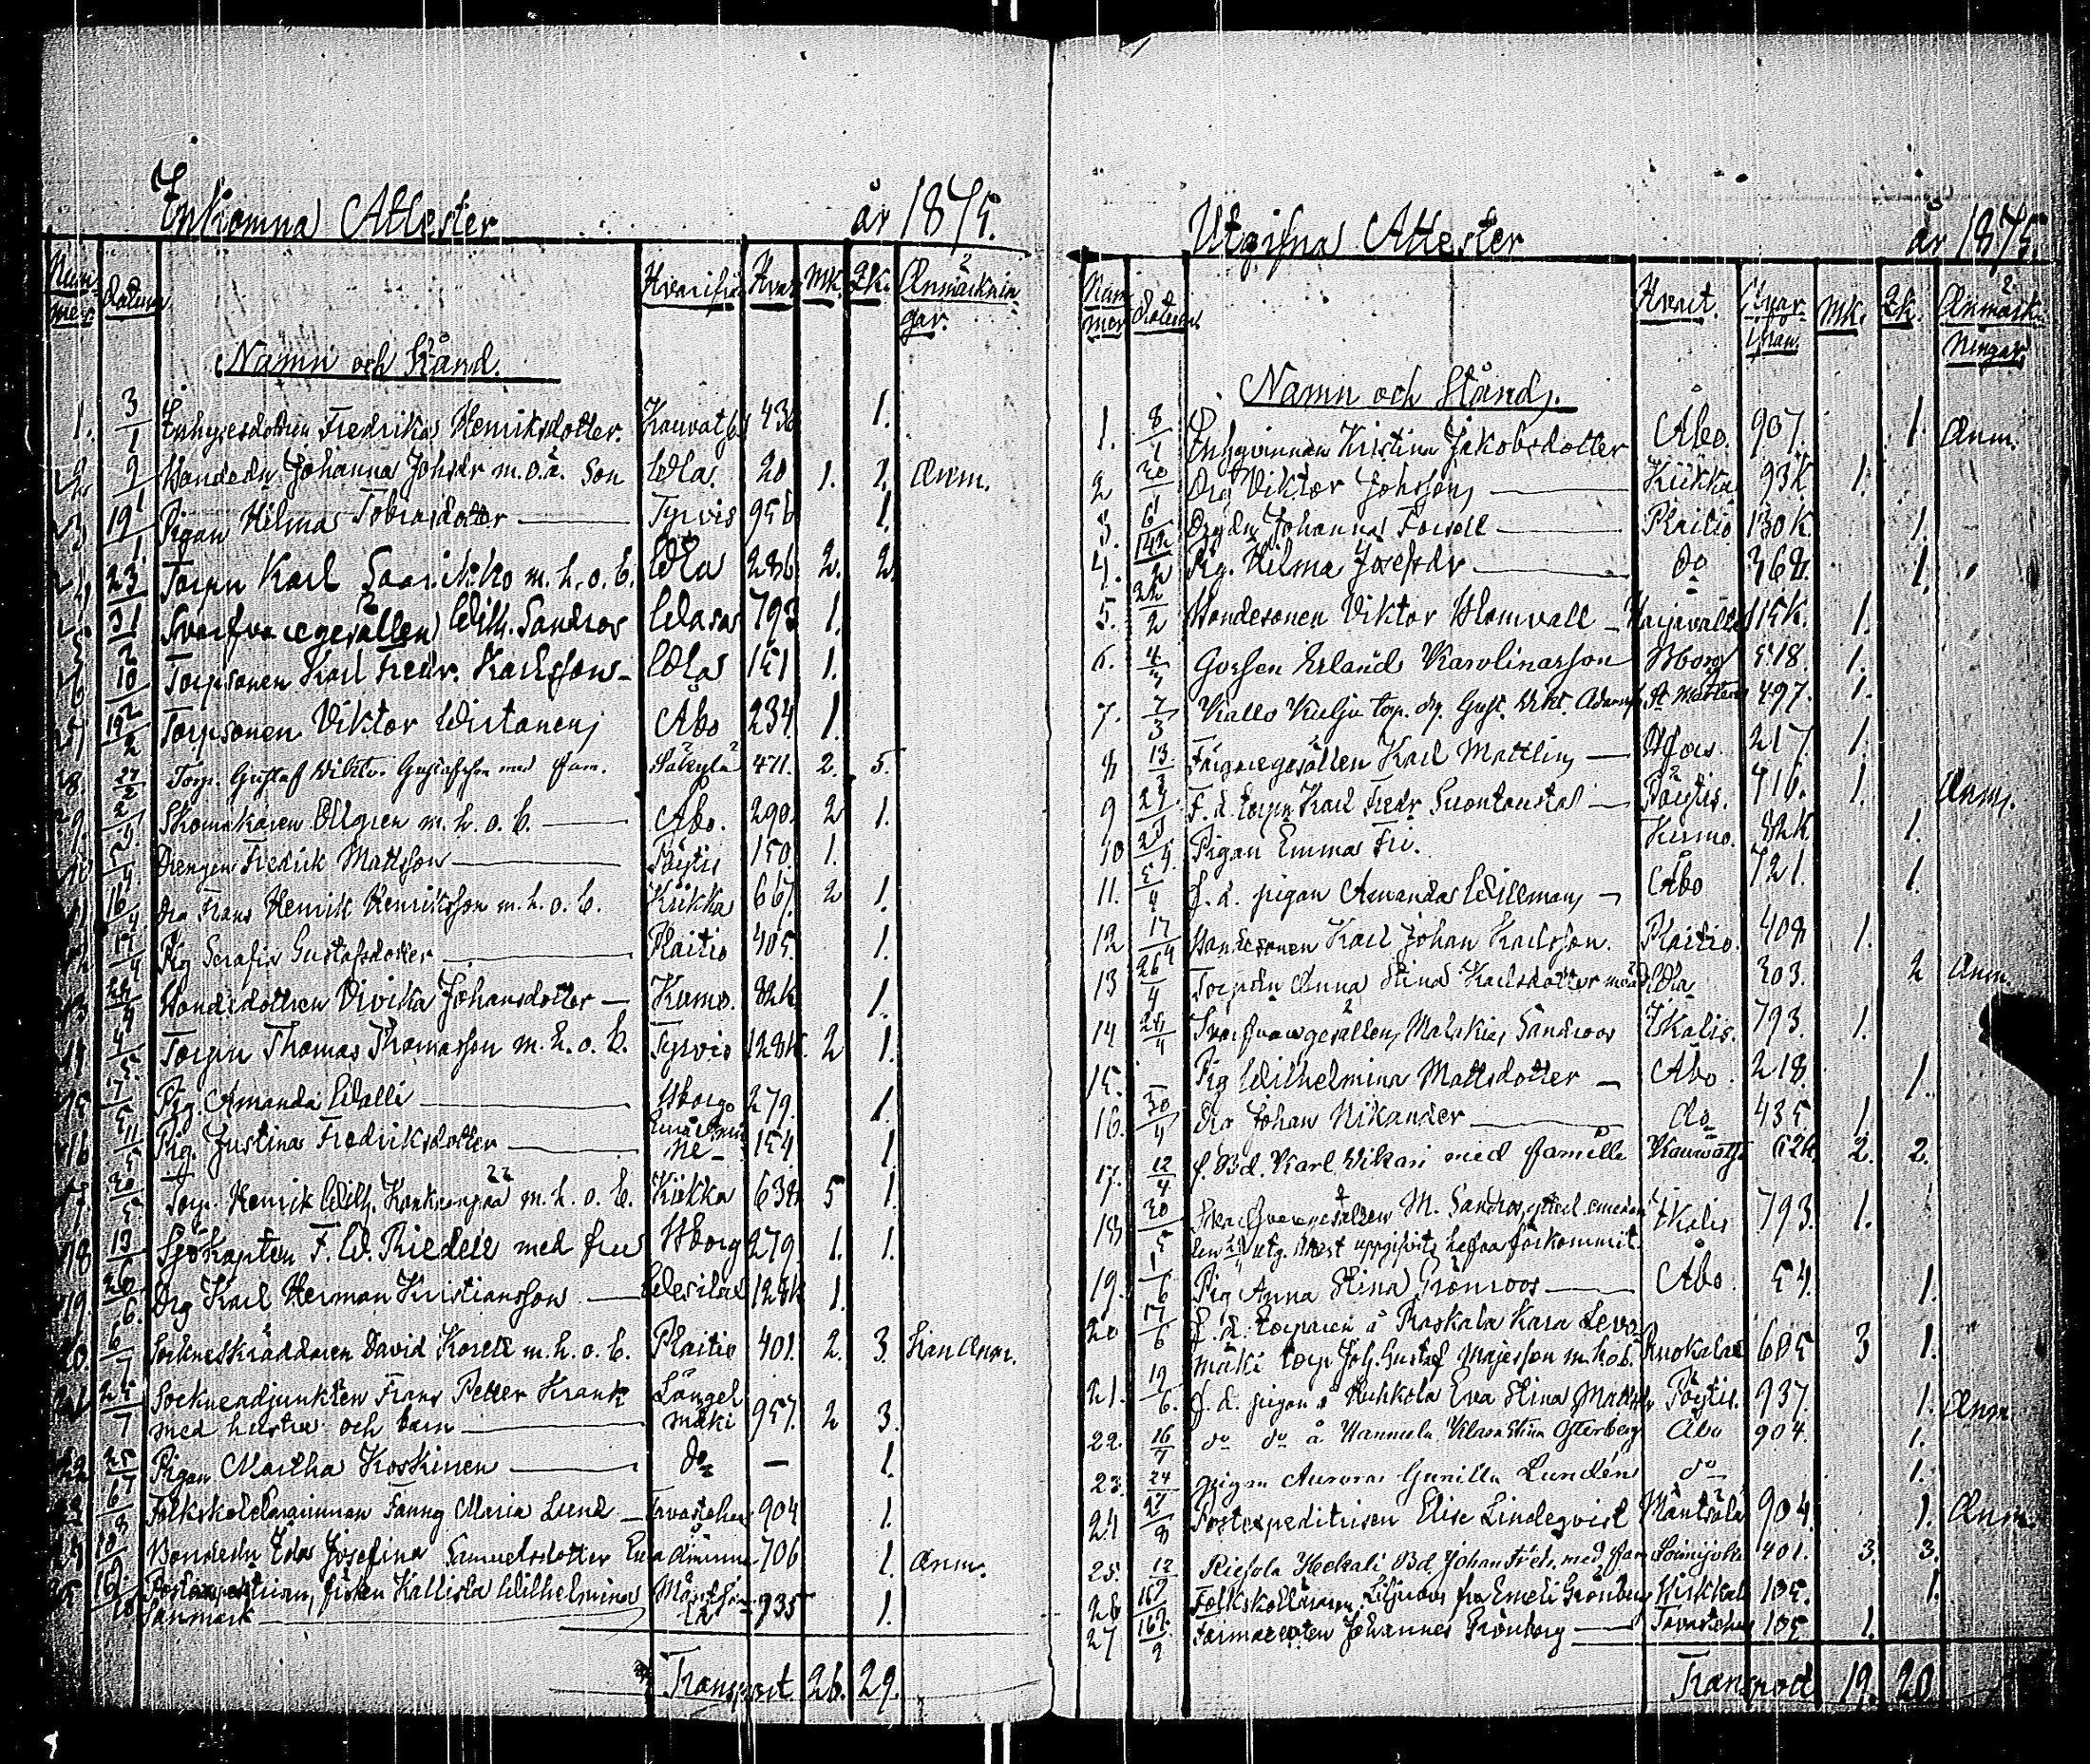 Inkomna Attester år 1875.
Num mer Datum Namn och Stånd. Hvarifrån Hvar Mk. Qk. Anmärknin gar.
1. 3/1 Inhysesdottren Fredrika Henriksdotter. Kauvats 436 1.
2 9/1 Bondedr Johanna Johsdr m.o.ä. son Ulla. 20 1. 1. Anm.
3 19/1 Pigan Hilma Tobiasdotter Tyrvis 956 1.
4 23/1 Torpn Karl Saarikko m. h. o. b. Ulla 286 2. 2.
5 31/1 Svarfvaregesällen Wilh. Sandroos Wasa 793 1.
6 2/10 Torpsonen Karl Fredr. Karlsson Ulla 151 1.
7 19/2 Torpsonen Viktor Wirtanen Åbo 234 1.
8. 27/2 Torp. Gustaf Viktor Gustafsson med fam. Säkylä 471. 2. 5.
9. 2/4 Skomakaren Ollgren m. h. o. b. Åbo. 290. 2 1.
10 5/4 Drengen Fredrik Mattsson Pöytis 150 1.
11 16/4 Drg Frans Henrik Henriksson m. h. o. b. Kiikka 667. 2 1.
12 17/4 Pig Serafia Gustafsdotter Plaitis 405. 1.
13 24/4 Bondedottren Divika Johansdotter Kumo. 82k 1.
14 4/5. Torpn Thomas Thomasson m. h. o. b. Tyrvis 128k. 2 1.
15 7/5 Pig. Amanda Walli Bborg 279. 1.
16 11/5 Pig. Justina Fredriksdotter 154. 1.
17. 20/5 Torp. Henrik Wilh. Kankaanpää m. h. o. b. Kiikka 638 5 1.
18 13/6 Sjökapten F. W. Riedell med fru Bborg 279 1. 1.
19. 26/6. Drg Karl Herman Kristiansson Wesilax 128k 1.
20. 6/7 Sockneskräddaren David Korell m. h. o. b. Plaitis 401. 2. 3. Anm.
21 25/7 Sockneadjunkten Frans Petter Krank Längel
med hustru och barn mäki 957. 2 3.
22 25/7 Pigan Martha Koskinen do — 1.
23 6/8 Folkskolelärarinnan Fanny Maria Lund Tavastehus 904 1.
24 18/8 Bondedr Ida Josefina Samuelsdotter Euraåminne 706 1. Anm.
25 16/10 fröken Kallista Wilhelmina Mäntsä
Sanmark lä 935 1.
Transport 26. 29.
Utgifna Attester år 1875.
Num mer Datum Namn och Stånd. Hvart. Hvar ifrån Mk. Qk. Anmärk ningar.
1. 8/1 Inhqvinnan Kristina Jakobsdotter Åbo. 907. 1. Anm.
2 20/1 Drg Viktor Johsson Kiikka 93k 1.
3. 6/2 Drgdr Johanna Forsell Plaitis 130k. 1.
4. 14/2 Pig. Hilma Josefsdr do 368. 1.
5. 22/2 Bondesonen Viktor Blomvall Harjavalta 115k. 1.
6. 4/3 Gossen Erland Karolinasson Bborg 518. 1.
7. 7/3 Kallo Kulju torp. drg. Gust. Vikt. Adamss St Mårtens 497. 1.
8 13/3 Färgaregesällen Karl Mattlin Hfors 217. 1.
9 27/3 F. d. torpn Karl Fredr Suontausta Pöytis. 416. 1. Anm.
10 29/3. Pigan Emma Fri. Kumo. 82k 1.
11. 5/4 f. d. pigan Amanda Willman Åbo 721. 1.
12 17/4 Bondesonen Karl Johan Karlsson. Plaitis. 408 1.
13 26/4 Torpdr Anna Stina Karlsdotter Ulla 303. 2 Anm.
14 28/4 Svarfvaregesällen Malakias Sandroos Ikalis. 793. 1.
15. — Pig Wilhelmina Mattsdotter Åbo. 218. 1.
16. 30/4 Drg Johan Nikander do 435. 1.
17. 12/4 f. Bd. Karl Vikari med familie Kauvatsa 62k. 2. 2.
18 20/5 Svarfvaregesällen M. Sandroos, emedan Ikalis 793. 1.
den utg. attest uppgifvits hafva förkommit.
19. 1/6 Pig Anna Stina Grönroos Åbo. 54. 1.
20 17/6 f. d. torparen å Raskala Kara Levo
mäki torp Joh. Gustaf Majasson m. h. o. b. Ruokalax 605 3 1.
21. 19/6. f. d. pigan å Kuhkola Eva Stina Mattsdr Pöytis. 937. 1. Anm.
22. 16/7 do do å Hannula Klara Stina Österberg Åbo 904. 1.
23. 24/7 pigan Aurora Gunilla Lundén do 1.
24 27/8 Postexpeditrisen Elise Lindeqvist Mäntsälä 904. 1. Anm.
25. 12/ Riesola Heckali Bd. Johan Fredr. med fam Loimijoki 401. 3. 3.
26 Folkskollärarinn. fru Emeli Grönberg Kirkkal 105. 1.
27 16/9 Farmaceuten Johannes Grönberg Tavastehus 105 1.
Transport 19. 20.